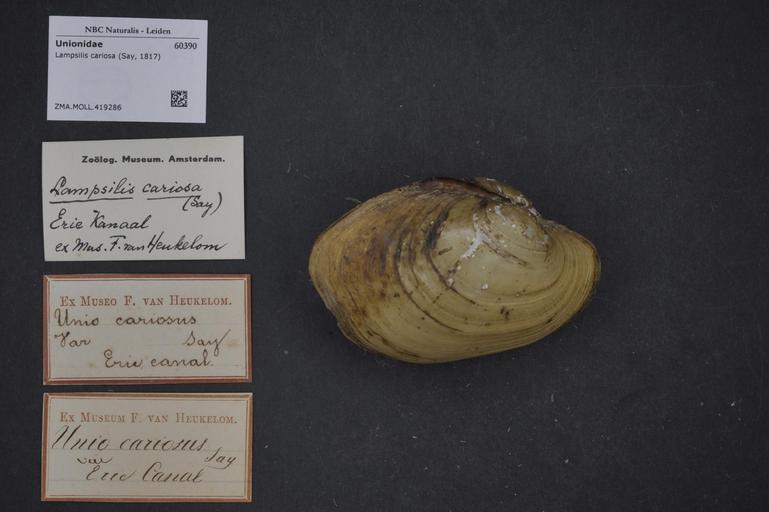 NBC Naturalis - Leiden
Unionidae 60390
Lampsilis cariosa (Say, 1817)
ZMA.MOLL.419286
Zoölog. Museum. Amsterdam.
Lampsilis cariosa
(Say)
Erie Kanaal
ex Mus. F. van Heukelom
Ex Museo F. van Heukelom.
Unio cariosus
Var Say
Erie canal.
Ex Museum F. van Heukelom.
Unio cariosus
var Say
Erie Canal